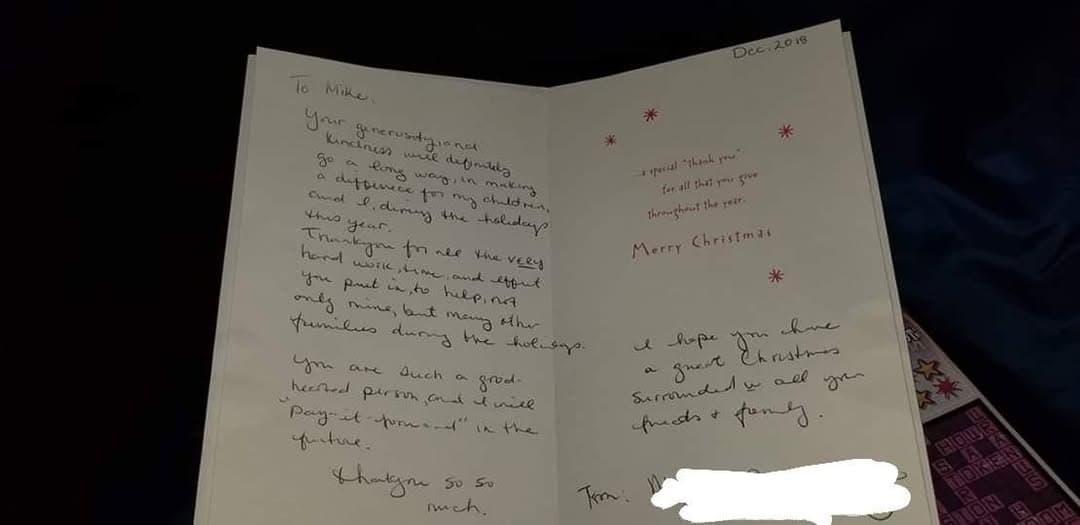 To Mike,
Your generosity, and
kindness will definitely
go a long way, in making
a difference for my children,
and I, during the holidays
this year.
Thankyou for all the very
hard work, time, and effort
you put in, to help, not
only mine, but many other
families during the holidays.
You are such a good-
hearted person, and I will
"pay-it-forward" in the
future.
Thankyou so so
much.
Dec. 2018
a special "thank you"
for all that you give
throughout the year.
Merry Christmas
I hope you have
a great Christmas
surrounded w all your
friends & family.
From:
HOUR
TOKENS